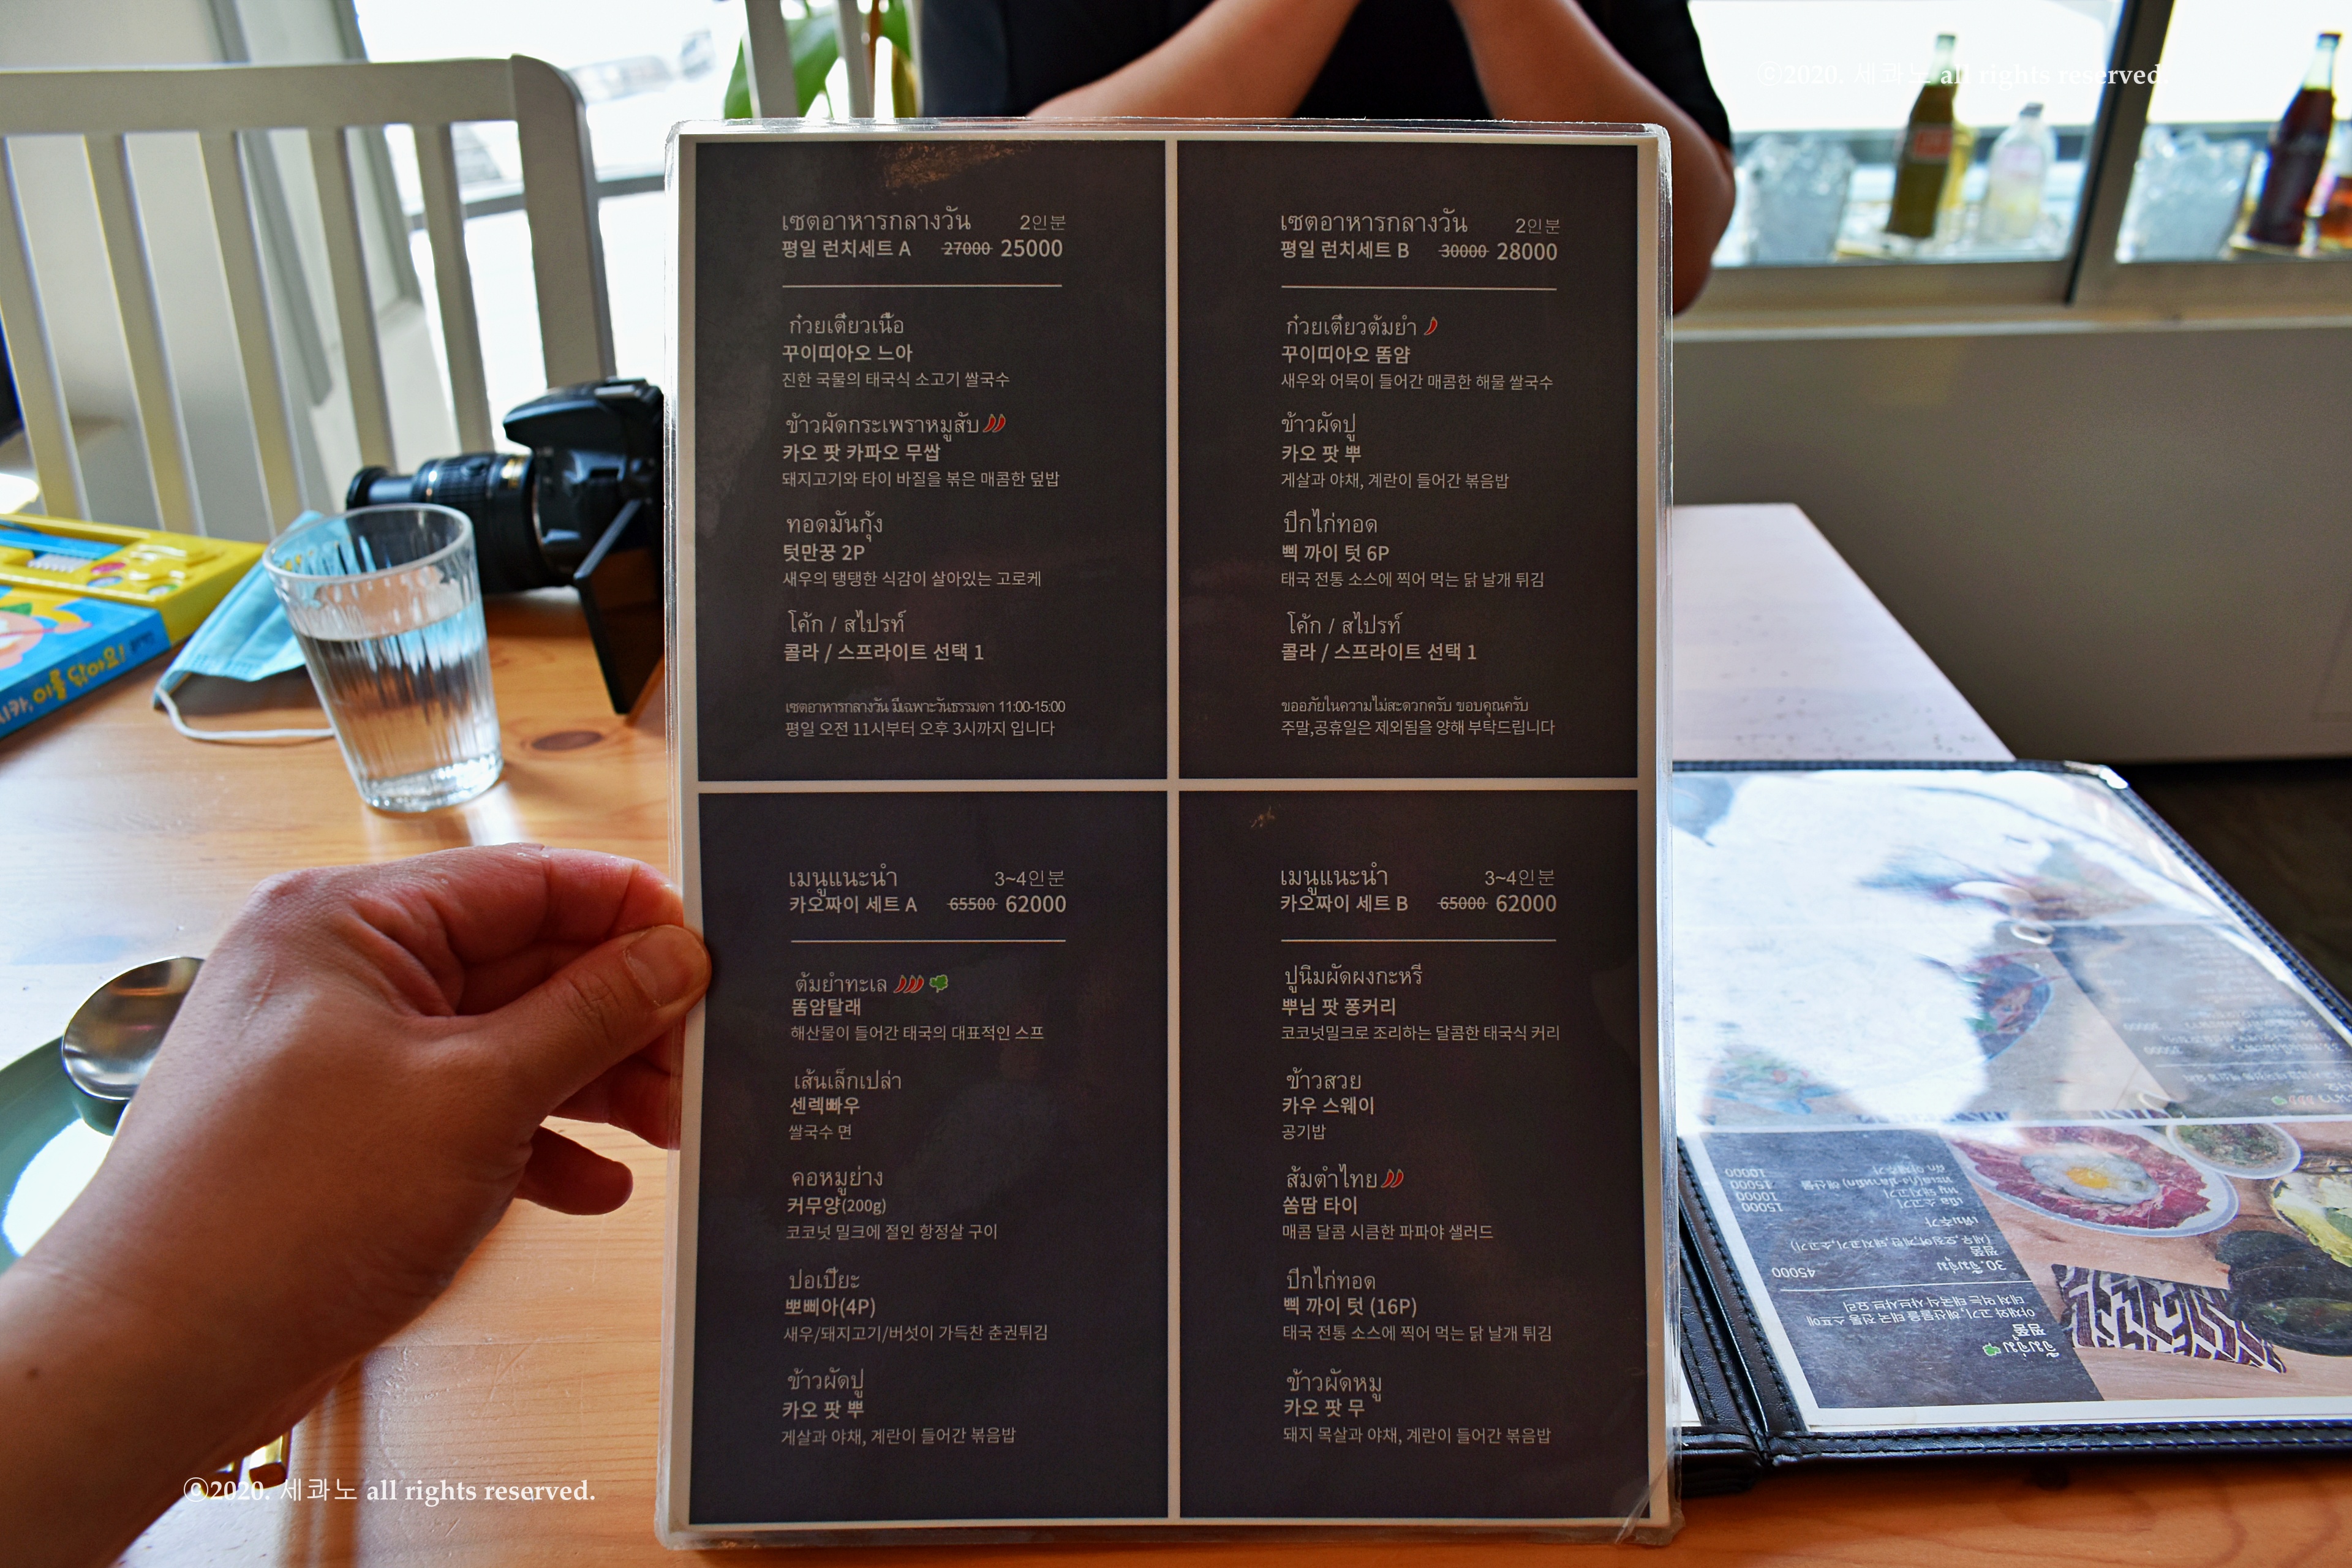 ⓒ2020. 세콰노 all rights reserved.
เซตอาหารกลางวัน 2인분
평일 런치세트 A 27000 25000
ก๋วยเตี๋ยวเนื้อ
꾸이띠아오 느아
진한 국물의 태국식 소고기 쌀국수
ข้าวผัดกระเพราหมูสับ
카오 팟 카파오 무쌉
돼지고기와 타이 바질을 볶은 매콤한 덮밥
ทอดมันกุ้ง
텃만꿍 2P
새우의 탱탱한 식감이 살아있는 고로케
โค้ก / สไปรท์
콜라 / 스프라이트 선택 1
เซตอาหารกลางวัน มีเฉพาะวันธรรมดา 11:00-15:00
평일 오전 11시부터 오후 3시까지 입니다
เซตอาหารกลางวัน 2인분
평일 런치세트 B 30000 28000
ก๋วยเตี๋ยวต้มยำ
꾸이띠아오 똠얌
새우와 어묵이 들어간 매콤한 해물 쌀국수
ข้าวผัดปู
카오 팟 뿌
게살과 야채, 계란이 들어간 볶음밥
ปีกไก่ทอด
삑 까이 텃 6P
태국 전통 소스에 찍어 먹는 닭 날개 튀김
โค้ก / สไปรท์
콜라 / 스프라이트 선택 1
ขออภัยในความไม่สะดวกครับ ขอบคุณครับ
주말,공휴일은 제외됨을 양해 부탁드립니다
เมนูแนะนำ 3~4인분
카오짜이 세트 A 65500 62000
ต้มยำทะเล
똠얌탈래
해산물이 들어간 태국의 대표적인 스프
เส้นเล็กเปล่า
센렉빠우
쌀국수 면
คอหมูย่าง
커무양(200g)
코코넛 밀크에 절인 항정살 구이
ปอเปี๊ยะ
뽀삐아(4P)
새우/돼지고기/버섯이 가득찬 춘권튀김
ข้าวผัดปู
카오 팟 뿌
게살과 야채, 계란이 들어간 볶음밥
เมนูแนะนำ 3~4인분
카오짜이 세트 B 65000 62000
ปูนิมผัดผงกะหรี
뿌님 팟 퐁커리
코코넛밀크로 조리하는 달콤한 태국식 커리
ข้าวสวย
카우 스웨이
공기밥
ส้มตำไทย
쏨땀 타이
매콤 달콤 시큼한 파파야 샐러드
ปีกไก่ทอด
삑 까이 텃 (16P)
태국 전통 소스에 찍어 먹는 닭 날개 튀김
ข้าวผัดหมู
카오 팟 무
돼지 목살과 야채, 계란이 들어간 볶음밥
이를 닦아요!
จิ้มจุ่ม
찜쭘
야채와 고기, 해산물을 태국 전통 스프에
데쳐 먹는 태국식 샤브샤브 요리
30. จิ้มจุ่ม 45000
찜쭘
(새우,오징어,계란,돼지고기,소고기)
เพิ่ม 추가
เนื้อ 소고기 15000
หมู 돼지고기 10000
15000
ผัก 야채추가 10000
ⓒ2020. 세콰노 all rights reserved.